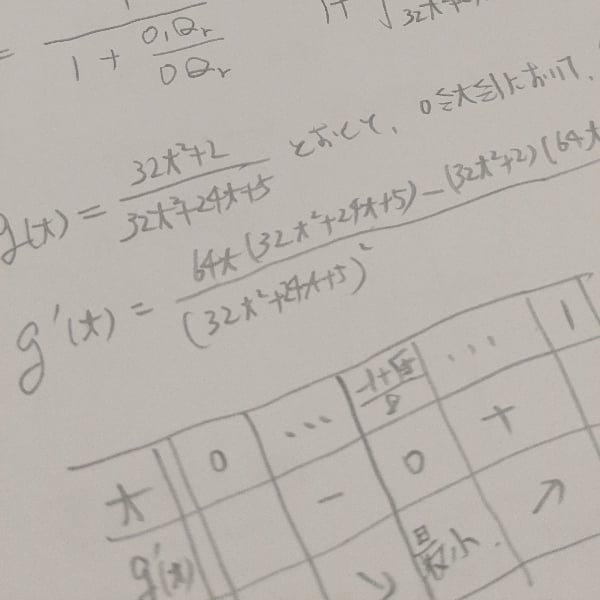 = 1 + O₁Qᵣ / OQᵣ
32x
g(x) = (32x²+2) / (32x²+24x+5) とおくと、0≦x≦1において、
g'(x) = 64x(32x²+24x+5)-(32x²+2)(64x / (32x²+24x+5)²
x 0 ... (-1+√5)/8 ... 1
g'(x) - 0 +
↘ 最小 ↗